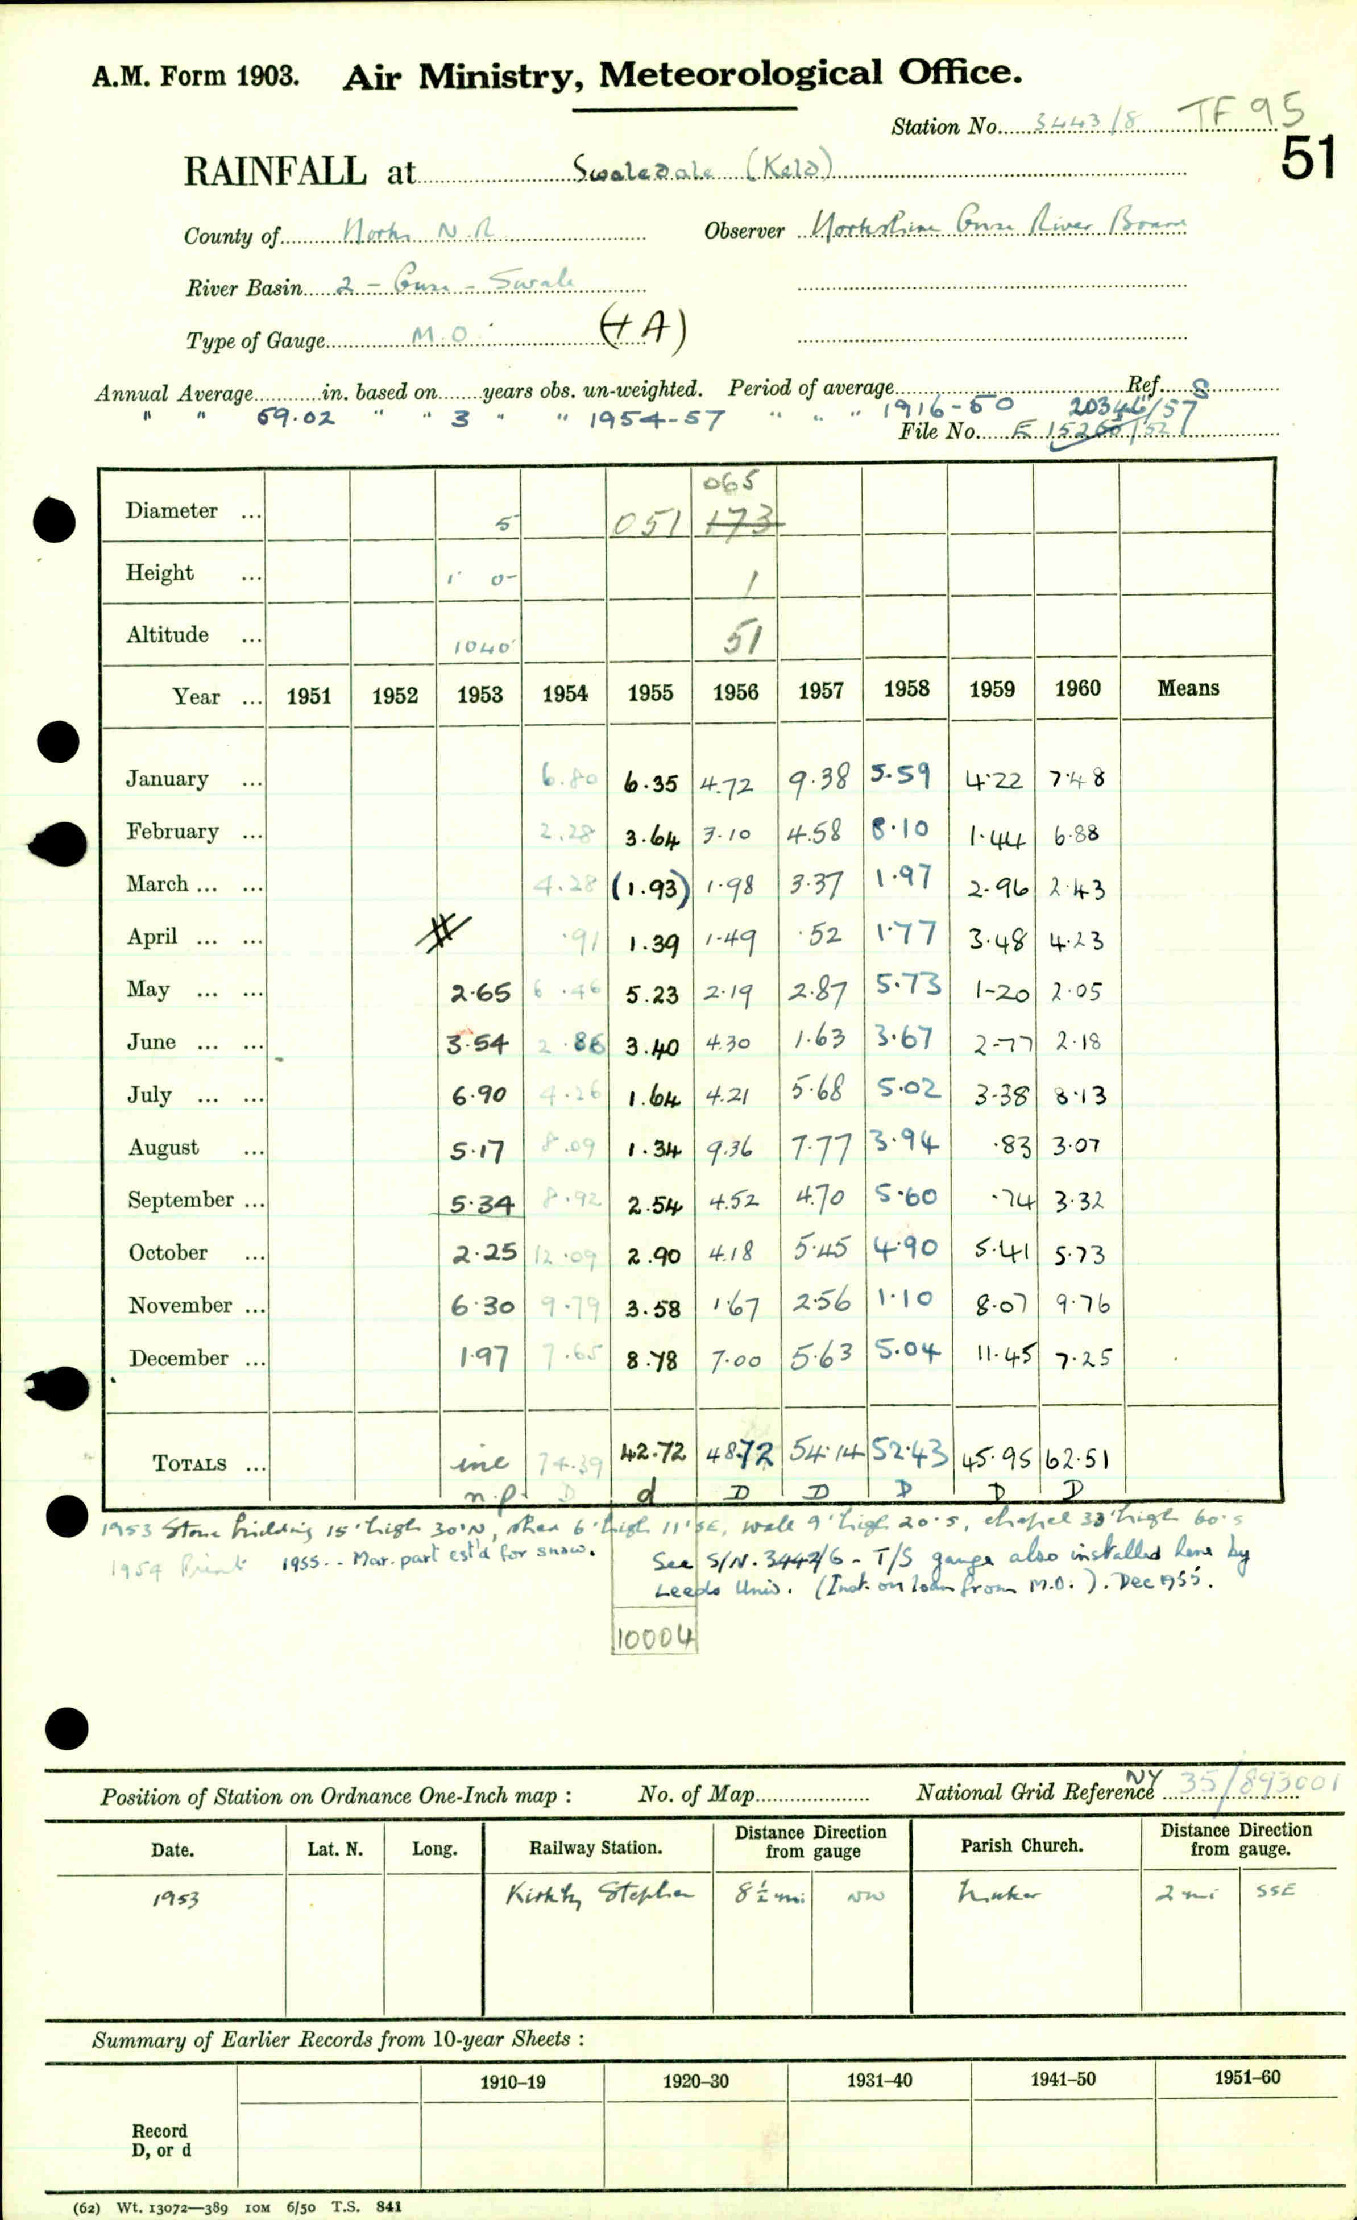 A.M. Form 1903. Air Ministry, Meteorological Office.
Station No. 3443/8 TF 95
51
RAINFALL at Swaledale (Keld)
County of Yorks N.R. Observer Yorkshire Ouse River Board
River Basin 2 - Ouse - Swale
Type of Gauge M.O. (+A)
Annual Average in. based on years obs. un-weighted. Period of average Ref. S
" " 59.02 " " 3 " " 1954-57 " " " 1916-50
File No.
Diameter ... 5 051 065 173
Height ... 1' 0" 1
Altitude ... 1040' 51
Year ... 1951 1952 1953 1954 1955 1956 1957 1958 1959 1960 Means
January ... 6.80 6.35 4.72 9.38 5.59 4.22 7.48
February ... 2.28 3.64 3.10 4.58 8.10 1.44 6.88
March ... ... 4.28 (1.93) 1.98 3.37 1.97 2.96 2.43
April ... ... .91 1.39 1.49 .52 1.77 3.48 4.23
May ... ... 2.65 6.46 5.23 2.19 2.87 5.73 1.20 2.05
June ... ... 3.54 2.86 3.40 4.30 1.63 3.67 2.77 2.18
July ... ... 6.90 4.26 1.64 4.21 5.68 5.02 3.38 8.13
August ... 5.17 8.09 1.34 9.36 7.77 3.94 .83 3.07
September ... 5.34 8.92 2.54 4.52 4.70 5.60 .74 3.32
October ... 2.25 12.09 2.90 4.18 5.45 4.90 5.41 5.73
November ... 6.30 9.79 3.58 1.67 2.56 1.10 8.07 9.76
December ... 1.97 7.65 8.78 7.00 5.63 5.04 11.45 7.25
TOTALS ... inc 74.39 42.72 48.72 54.14 52.43 45.95 62.51
n.p. D d D D D D D
1953 Stone building 15' high 30' N, other 6' high 11' SE, wall 9' high 20' S, chapel 33' high 60' S
1954 Print 1955 - Mar. part est'd for snow. See S/N. 3442/6 - T/S gauge also installed here by
Leeds Univ. (Inst. on loan from M.O.). Dec 1955.
10004
Position of Station on Ordnance One-Inch map : No. of Map National Grid Reference NY 35/893001
Date. Lat. N. Long. Railway Station. Distance Direction from gauge Parish Church. Distance Direction from gauge.
1953 Kirkby Stephen 8½ mi NW Muker 2 mi SSE
Summary of Earlier Records from 10-year Sheets :
1910–19 1920–30 1931–40 1941–50 1951–60
Record
D, or d
(62) Wt. 13072—389 10M 6/50 T.S. 841